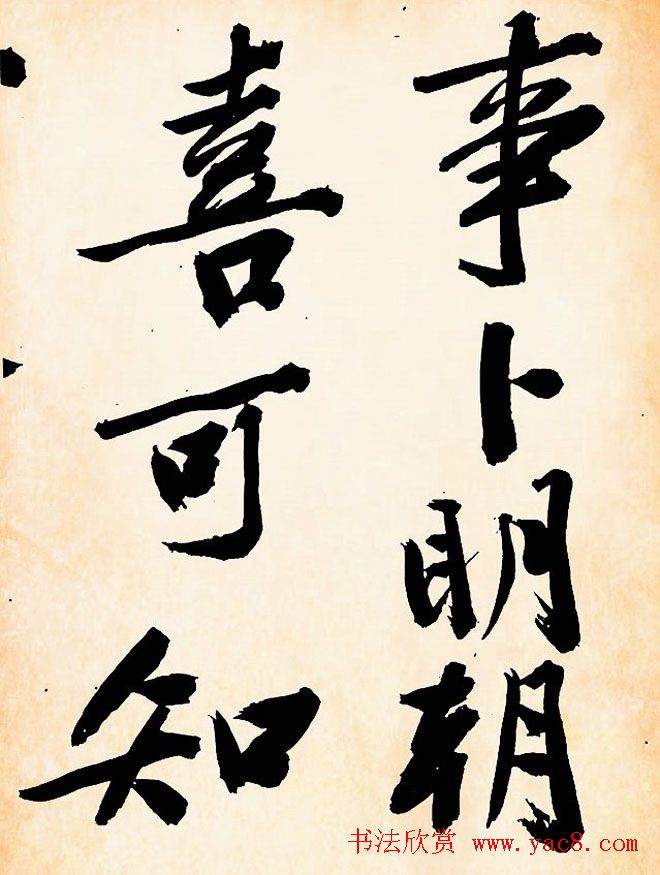 事卜明朝
喜可知
书法欣赏 www.yac8.com